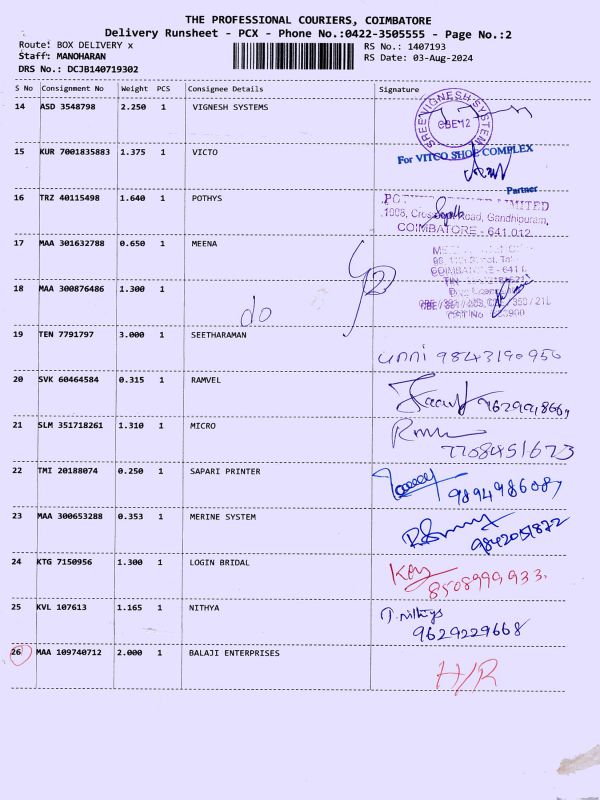 THE PROFESSIONAL COURIERS, COIMBATORE
Delivery Runsheet - PCX - Phone No.:0422-3505555 - Page No.:2
Route: BOX DELIVERY x
RS No.: 1407193
Staff: MANOHARAN
RS Date: 03-Aug-2024
DRS No.: DCJB140719302
S No Consignment No Weight PCS Consignee Details Signature
14 ASD 3548798 2.250 1 VIGNESH SYSTEMS
SREE VIGNESH SYSTEM
CBE-12
15 KUR 7001835883 1.375 1 VICTO
For VITCO SHOE COMPLEX
Partner
16 TRZ 40115498 1.640 1 POTHYS
LIMITED
Road, Gandhipuram,
COIMBATORE - 641 012
17 MAA 301632788 0.650 1 MEENA
18 MAA 300876486 1.300 1
do
19 TEN 7791797 3.000 1 SEETHARAMAN
unni 9843190950
20 SVK 60464584 0.315 1 RAMVEL
21 SLM 351718261 1.310 1 MICRO
7708451673
22 TMI 20188074 0.250 1 SAPARI PRINTER
9894986087
23 MAA 300653288 0.353 1 MERINE SYSTEM
9842051872
24 KTG 7150956 1.300 1 LOGIN BRIDAL
8508999933.
25 KVL 107613 1.165 1 NITHYA
P. nithya
9629229668
26 MAA 109740712 2.000 1 BALAJI ENTERPRISES
H/R